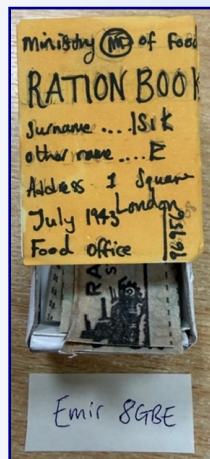 Ministry MF of Food
RATION BOOK
Surname .... Isik
other name .... E
Address 1 Square
London
July 1943
Food office
RA
Emir 8GBE